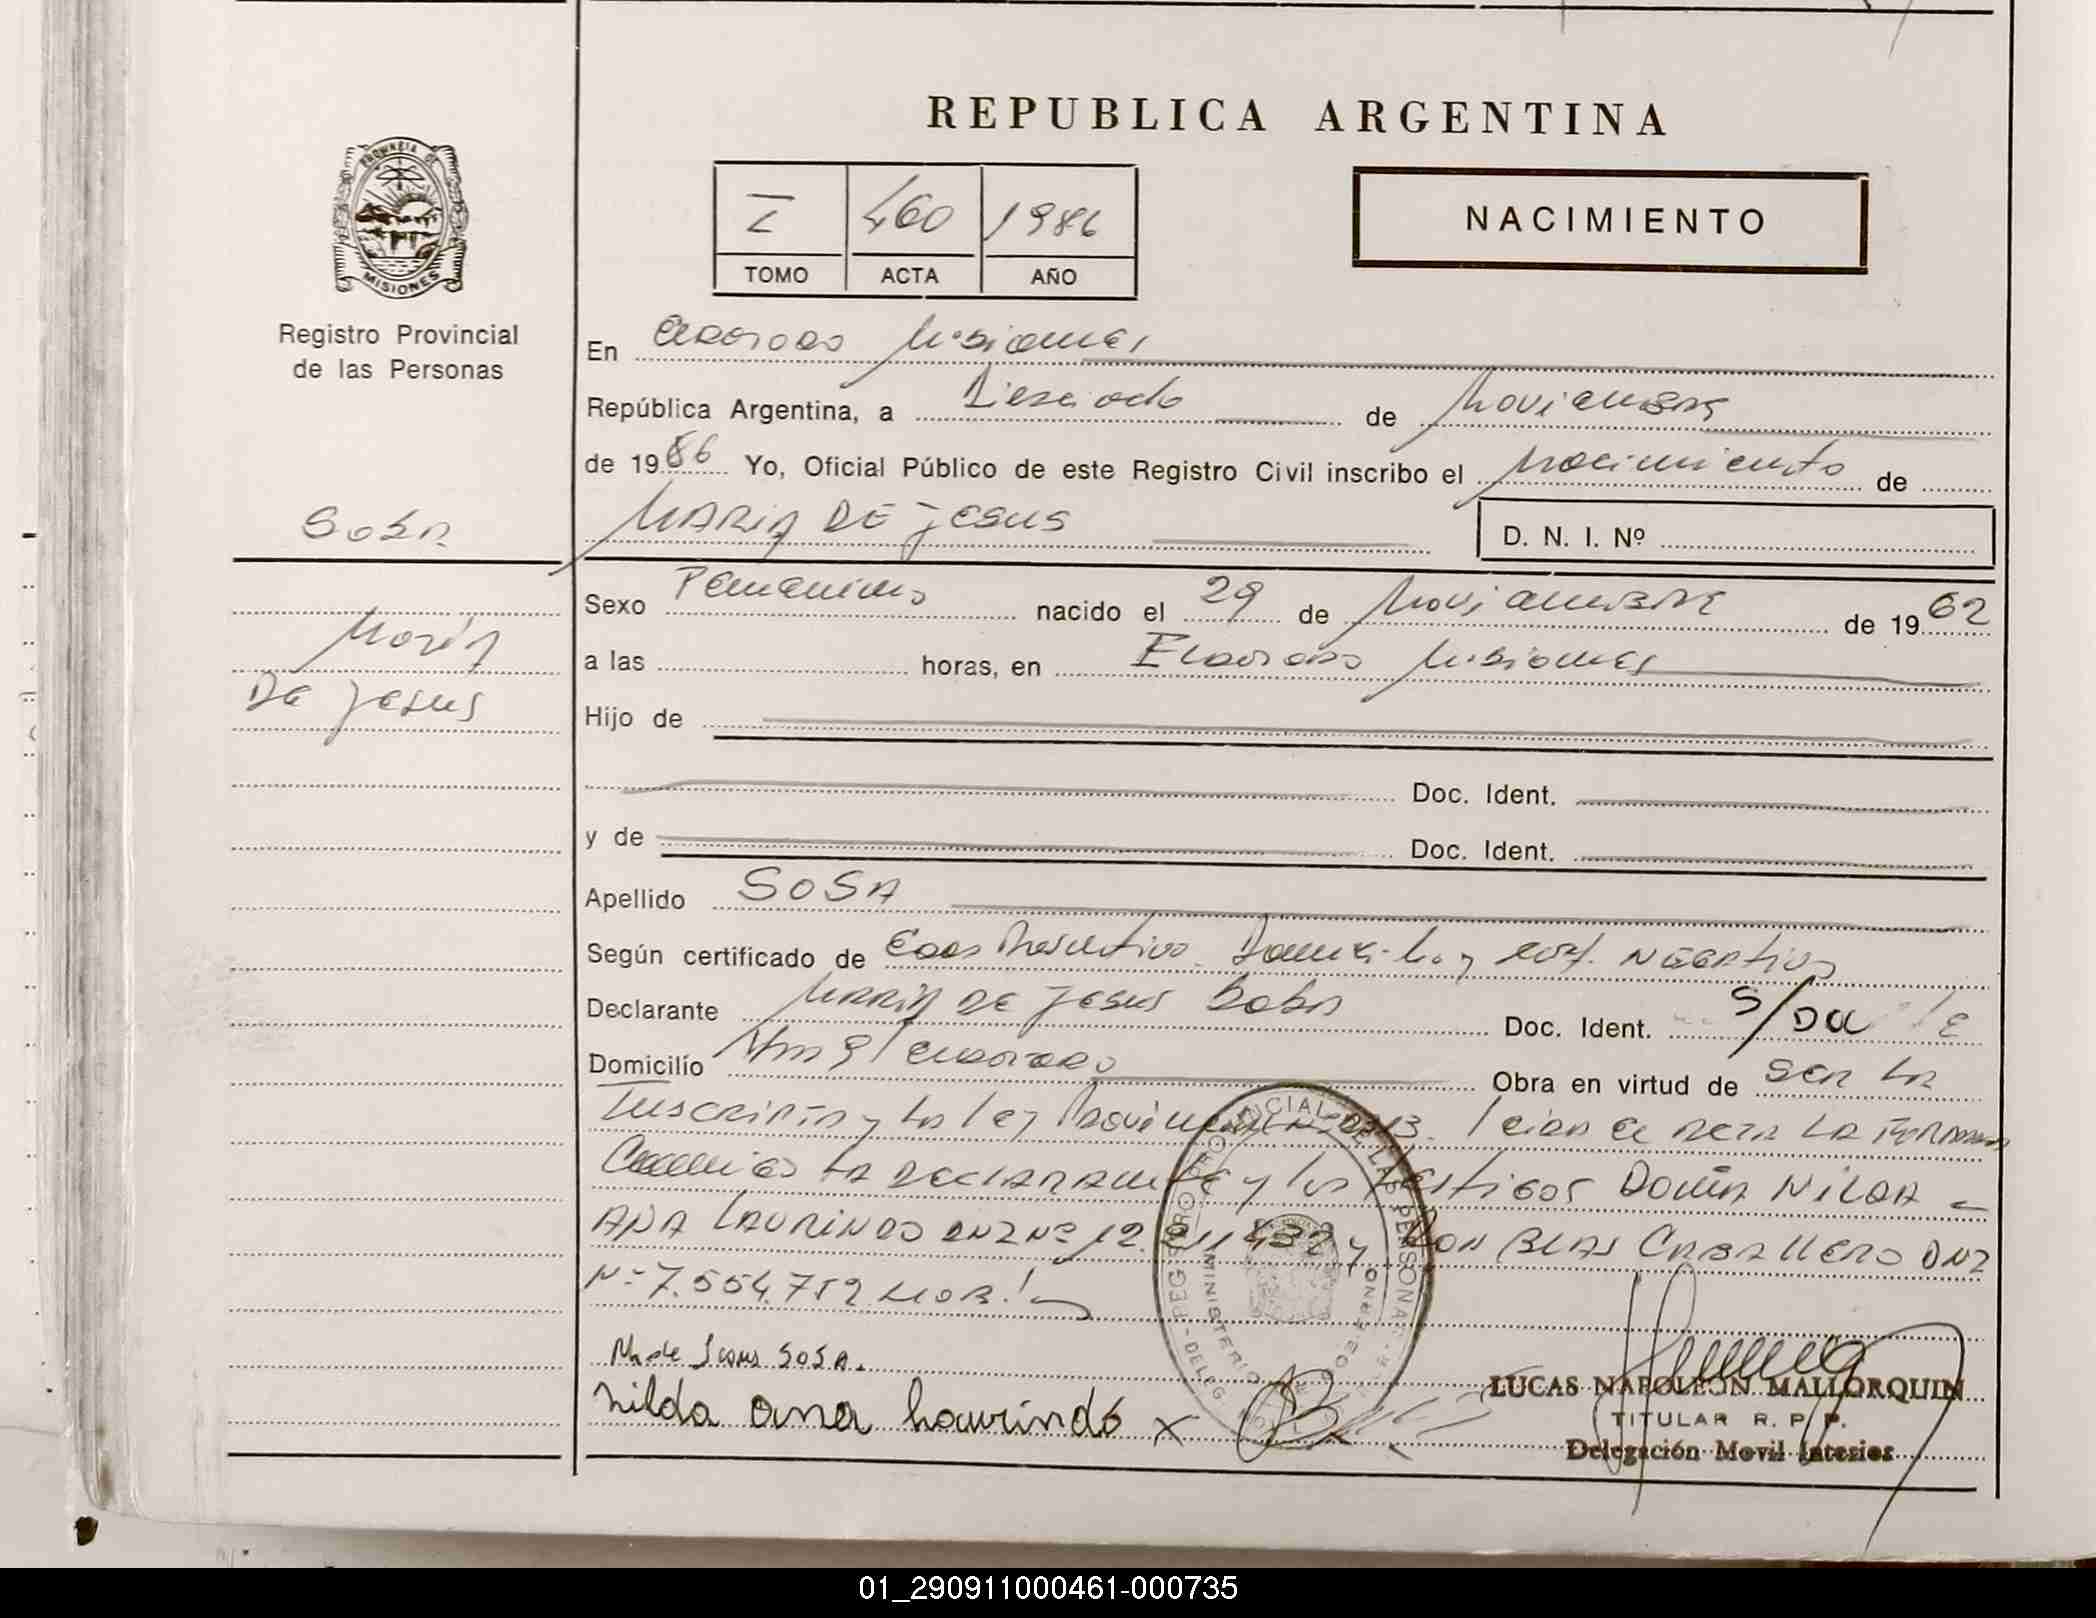 REPUBLICA ARGENTINA
PROVINCIA DE MISIONES
Registro Provincial
de las Personas
I 460 1986
TOMO ACTA AÑO
NACIMIENTO
En Eldorado Misiones
República Argentina, a Dieciocho de Noviembre
de 1986 Yo, Oficial Público de este Registro Civil inscribo el Nacimiento de
MARIA DE JESUS
D. N. I. Nº
SOSA
María
De Jesus
Sexo Femenino nacido el 29 de Noviembre de 1962
a las horas, en Eldorado Misiones
Hijo de
Doc. Ident.
y de Doc. Ident.
Apellido SOSA
Según certificado de Negativo
Declarante MARIA DE JESUS SOSA Doc. Ident. S/
Domicilio Eldorado Obra en virtud de SER LA
Inscripta y La Ley Provincial Leida el Acta LA
LA DECLARANTE y los testigos DOÑA NILDA
ANA LAURINDO DNI Nº 12. 432 y DON BLAS CABALLERO DNI
Nº 7.554.752
Ma de Jesus SOSA.
Nilda ana Laurindo x
REGISTRO PROVINCIAL DE LAS PERSONAS
MINISTERIO DE GOBIERNO
LUCAS NAPOLEON MALLORQUIN
TITULAR R. P. P.
Delegación Movil Interior
01_290911000461-000735